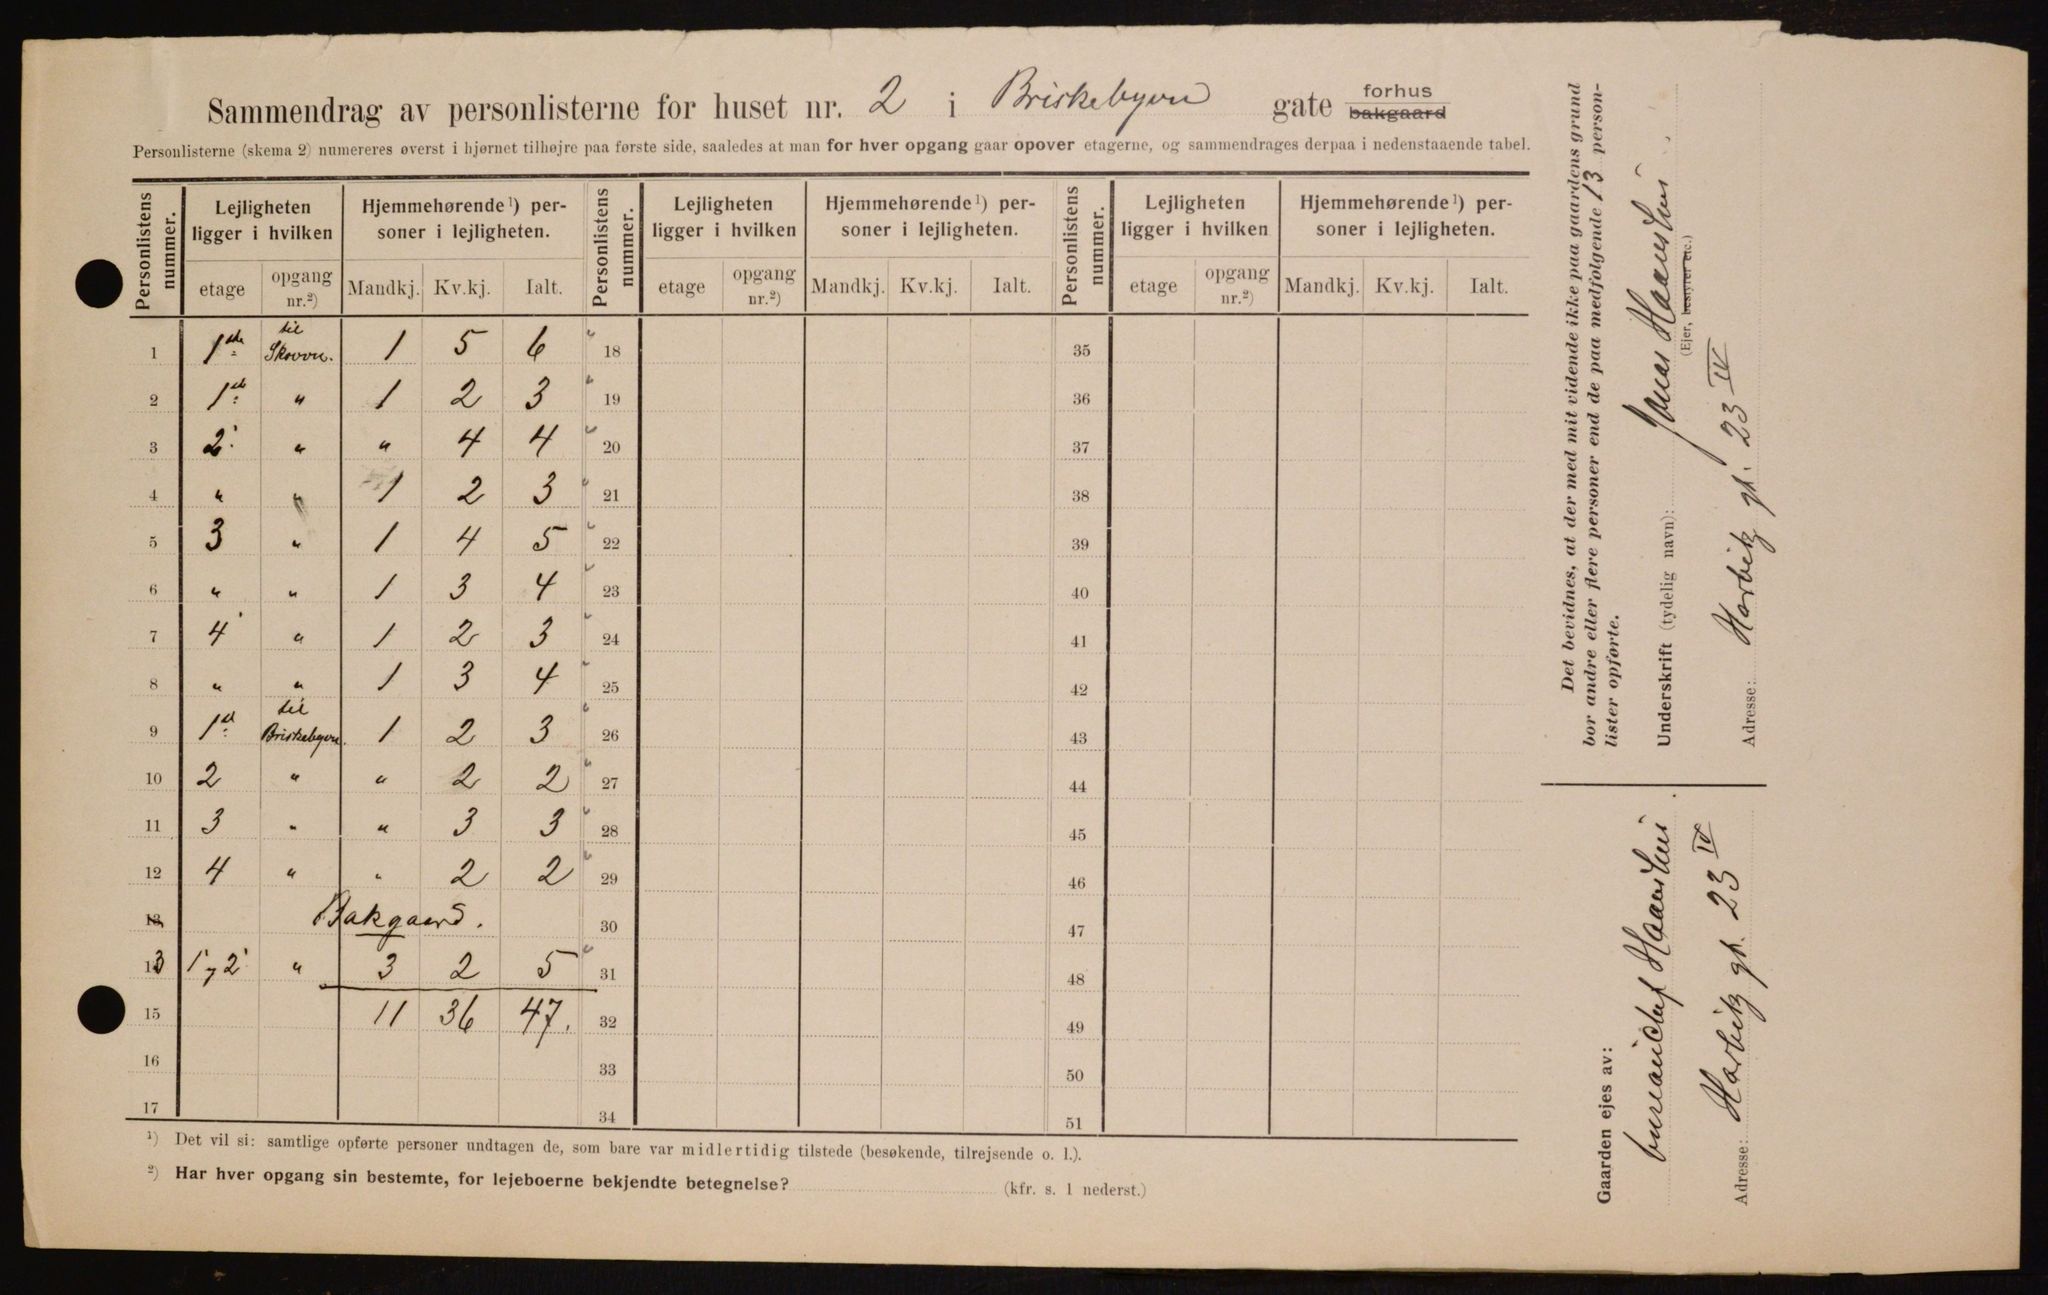 Sammendrag av personlisterne for huset nr. 2 i Briskebyvn gate forhus bakgaard
Personlisterne (skema 2) numereres øverst i hjørnet tilhøjre paa første side, saaledes at man for hver opgang gaar opover etagerne, og sammendrages derpaa i nedenstaaende tabel.
Personlistens nummer. Lejligheten ligger i hvilken Hjemmehørende ¹) personer i lejligheten. Personlistens nummer. Lejligheten ligger i hvilken Hjemmehørende ¹) personer i lejligheten. Personlistens nummer. Lejligheten ligger i hvilken Hjemmehørende ¹) personer i lejligheten.
etage opgang nr.²) Mandkj. Kv.kj. Ialt. etage opgang nr.²) Mandkj. Kv.kj. Ialt. etage opgang nr.²) Mandkj. Kv.kj. Ialt.
1 1ste til Skovvn. 1 5 6 18 35
2 1ste " 1 2 3 19 36
3 2. " " 4 4 20 37
4 " " 1 2 3 21 38
5 3 " 1 4 5 22 39
6 " " 1 3 4 23 40
7 4 " 1 2 3 24 41
8 " " 1 3 4 25 42
9 1st til Briskebyvn. 1 2 3 26 43
10 2 " " 2 2 27 44
11 3 " " 3 3 28 45
12 4 " " 2 2 29 46
13 Bakgaard. 30 47
13 1 og 2 " 3 2 5 31 48
15 11 36 47. 32 49
16 33 50
17 34 51
¹) Det vil si: samtlige opførte personer undtagen de, som bare var midlertidig tilstede (besøkende, tilrejsende o. l.).
²) Har hver opgang sin bestemte, for lejeboerne bekjendte betegnelse? (kfr. s. 1 nederst.)
Det bevidnes, at der med mit vidende ikke paa gaardens grund
bor andre eller flere personer end de paa medfølgende 13 person-
lister opførte.
Underskrift (tydelig navn): Jonas
(Ejer, bestyrer etc.)
Adresse: Harbitz gt. 23 IV
Gaarden ejes av:
Adresse: Harbitz gt. 23 IV